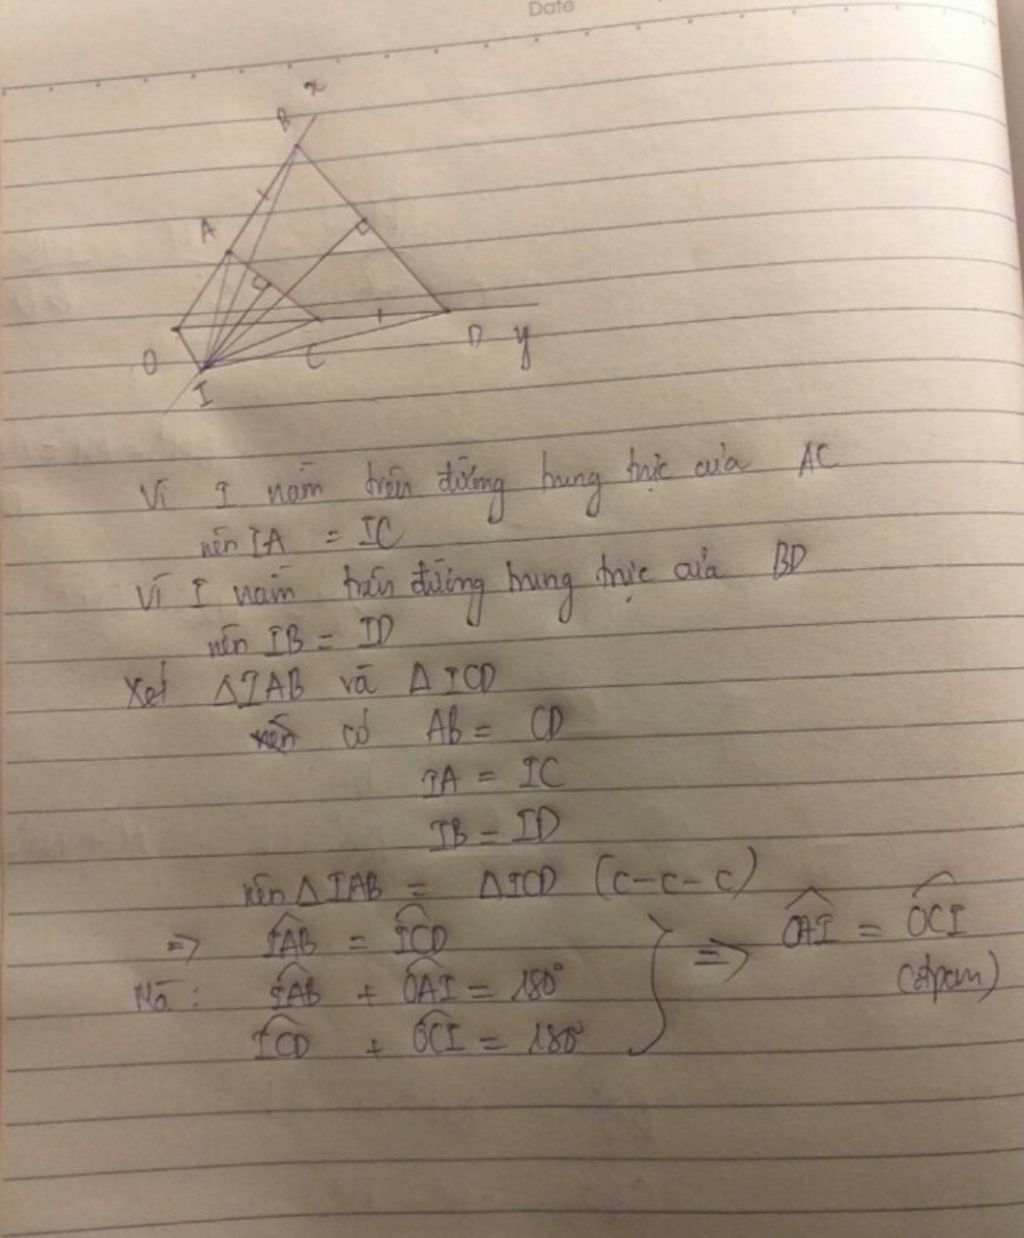 Date
x
B
A
O
I
C
D y
Vì I nằm trên đường trung trực của AC
nên IA = IC
Vì I nằm trên đường trung trực của BD
nên IB = ID
Xét ΔIAB và ΔICD
có AB = CD
IA = IC
IB = ID
nên ΔIAB = ΔICD (c-c-c)
=> \widehat{IAB} = \widehat{ICD}
Mà: \widehat{IAB} + \widehat{OAI} = 180°
\widehat{ICD} + \widehat{OCI} = 180°
=> \widehat{OAI} = \widehat{OCI}
(đpcm)